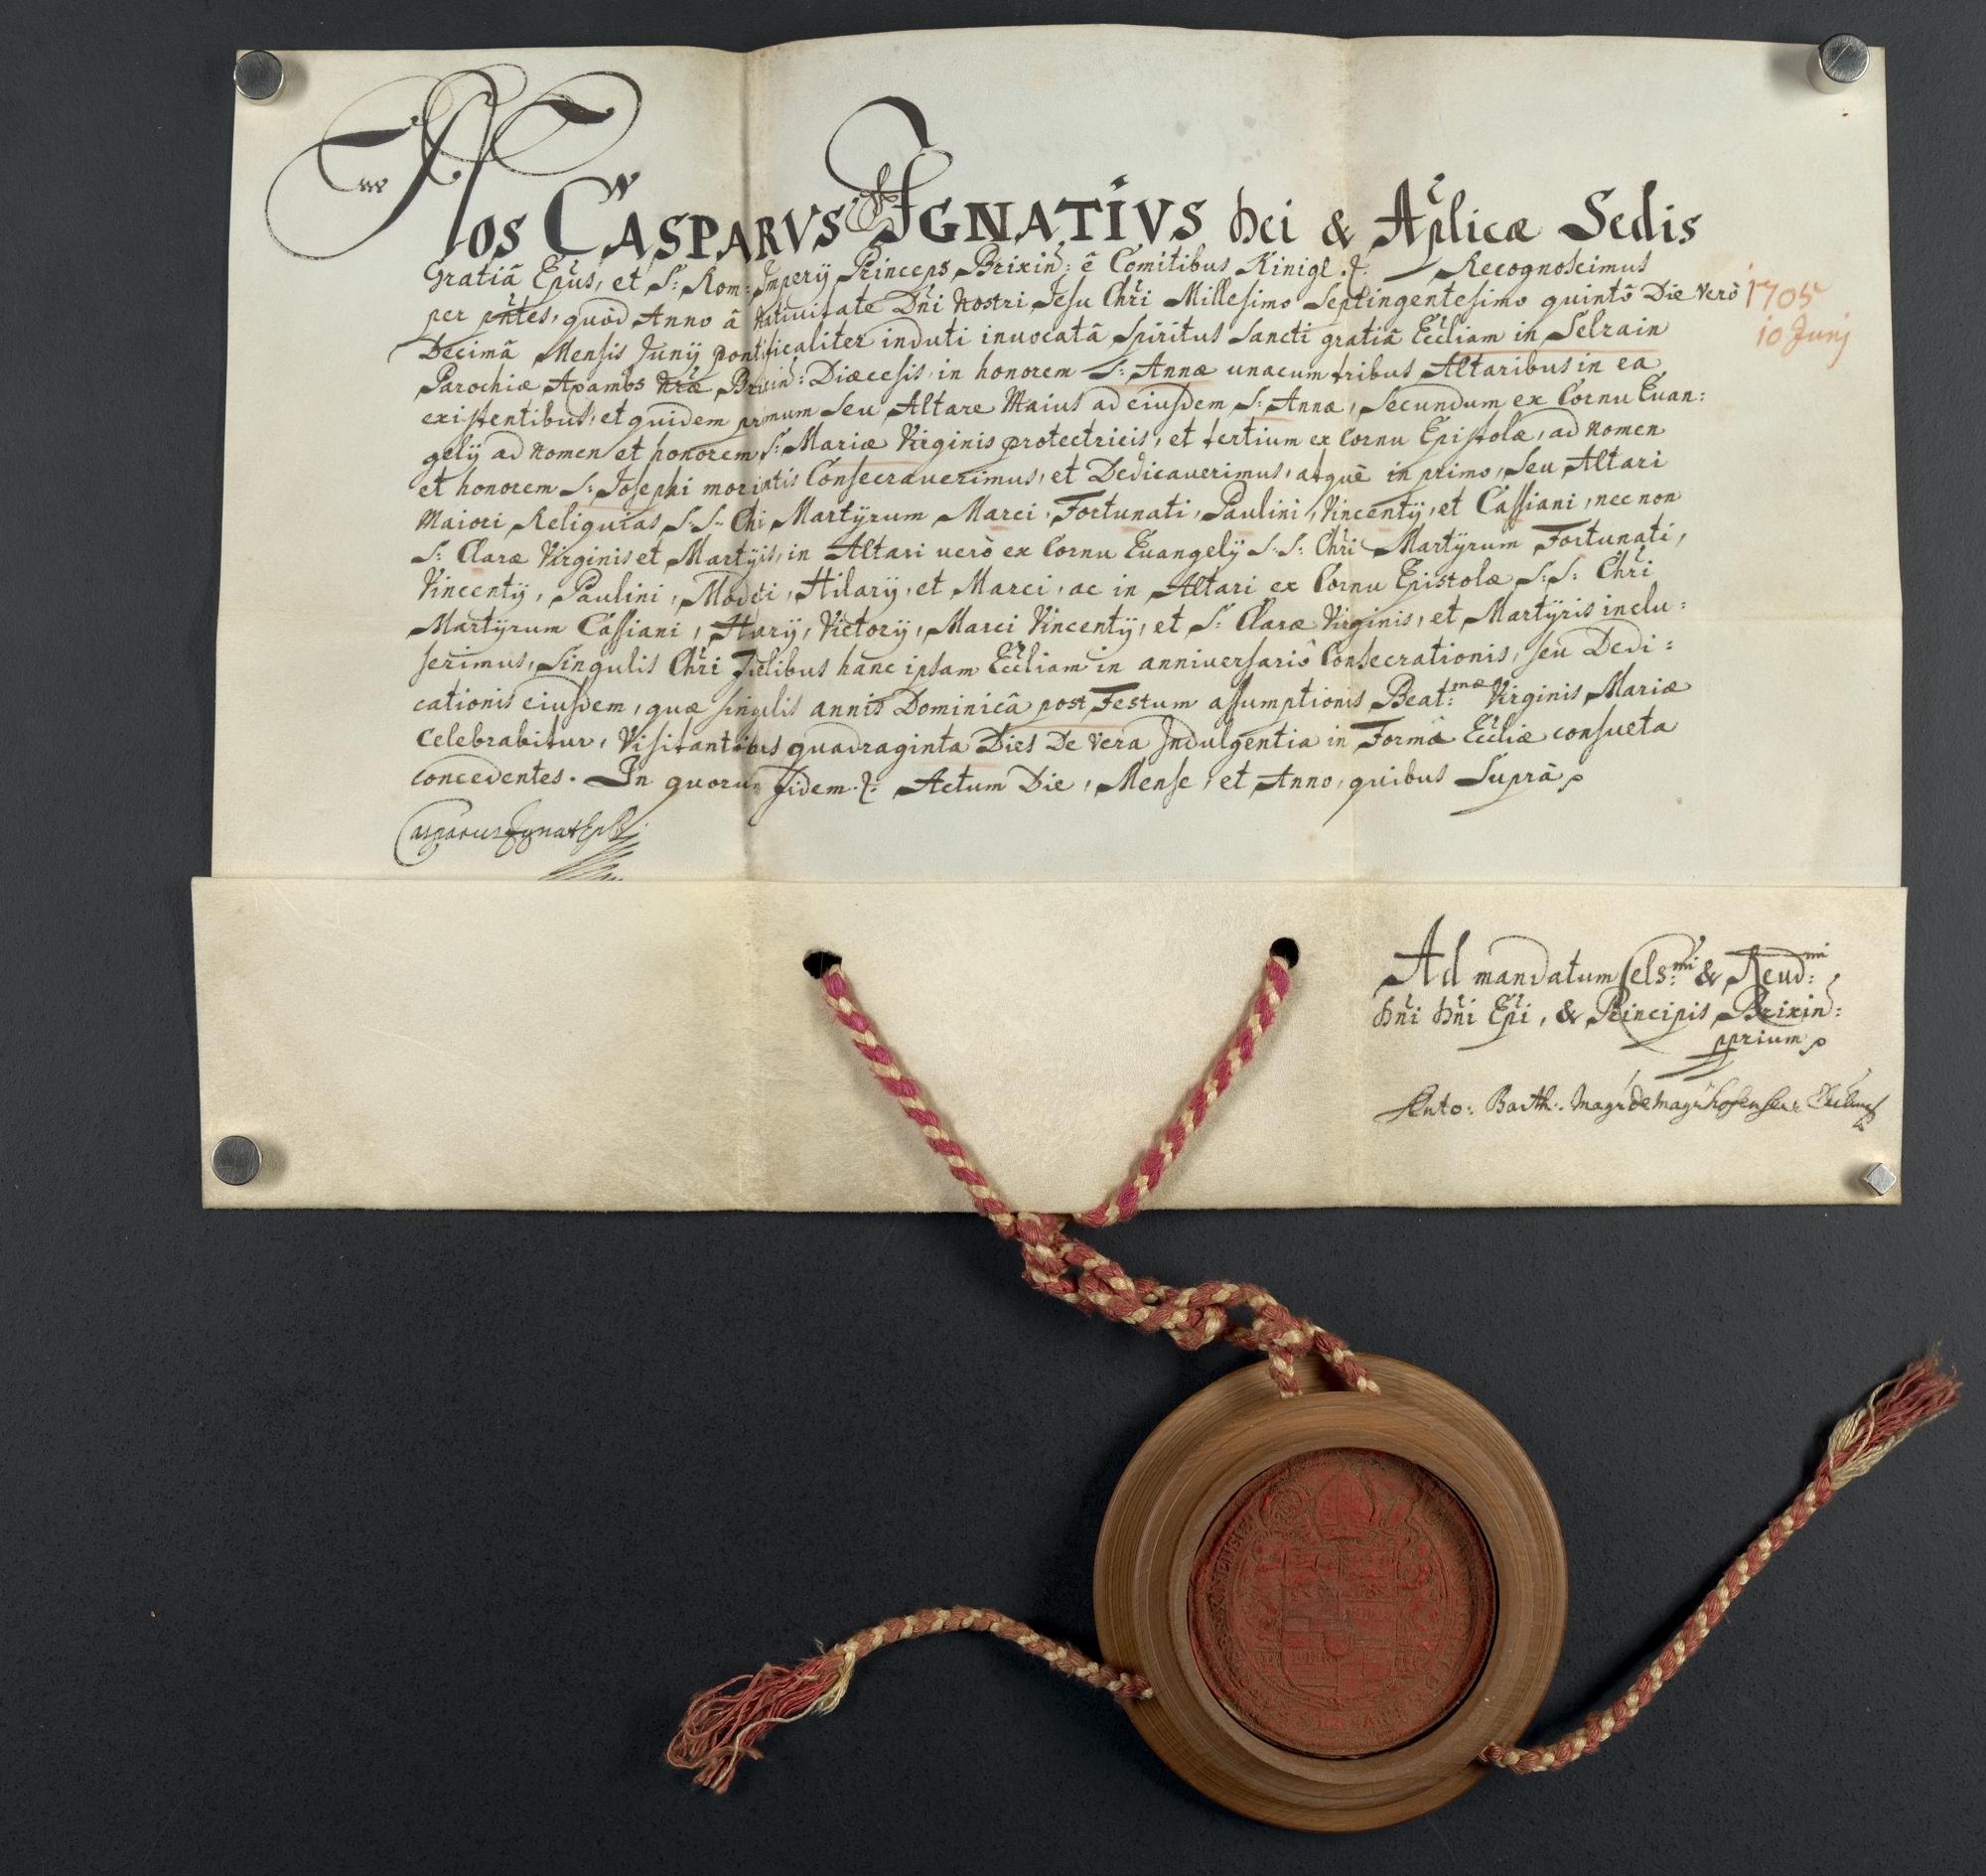 Nos CASPARVS IGNATIVS Dei & Aplicæ Sedis
Gratiâ Epus, et S: Rom: Imperÿ Princeps Brixin: è Comitibus Kinigl. &: Recognoscimus
per pntes, quòd Anno à Nativitate Dni Nostri Jesu Chri Millesimo Septingentesimo quintô Die Verò
Decimâ Mensis Junÿ pontificaliter induti inuocatâ Spiritus Sancti gratiâ Eccliam in Selrain
Parochiæ Axambs nræ Brixin: Diæcesis in honorem S: Annæ unacum tribus Altaribus in ea
existentibus, et quidem primum seu Altare Maius ad eiusdem S: Annæ, Secundum ex Cornu Euan:
gelÿ ad Nomen et honorem S: Mariæ Virginis protectricis, et tertium ex Cornu Epistolæ, ad Nomen
et honorem S: Josephi morientis Consecrauerimus, et Dedicauerimus, atquè in primo, seu Altari
Maiori Reliquias S.S. Chi Martÿrum Marci, Fortunati, Paulini, Vincentÿ, et Cassiani, nec non
S: Claræ Virginis et Martÿis, in Altari verò ex Cornu Euangelÿ S.S: Chri Martÿrum Fortunati,
Vincentÿ, Paulini, Hilarÿ, et Marci, ac in Altari ex Cornu Epistolæ S:S: Chri
Martÿrum Cassiani, Victorÿ, Marci Vincentÿ, et S: Claræ Virginis, et Martÿris inclu:
serimus, Singulis Chri fidelibus hanc ipsam Eccliam in anniuersariô Consecrationis, seu Dedi:
cationis eiusdem, quæ singulis annis Dominicâ post Festum assumptionis Beat:mæ Virginis Mariæ
Celebrabitur, Visitantibus quadraginta Dies De Vera Indulgentia in Formâ Eccliæ consueta
concedentes. In quorum fidem &: Actum Die, Mense, et Anno, quibus Suprà
Casparus Ignat Eps
1705
10 Junÿ
Ad mandatum Cels:mi & Reud:mi
Dni Dni Epi, & Principis Brixin:
pprium
Anto: Barth: Mayr de Mayrshofen